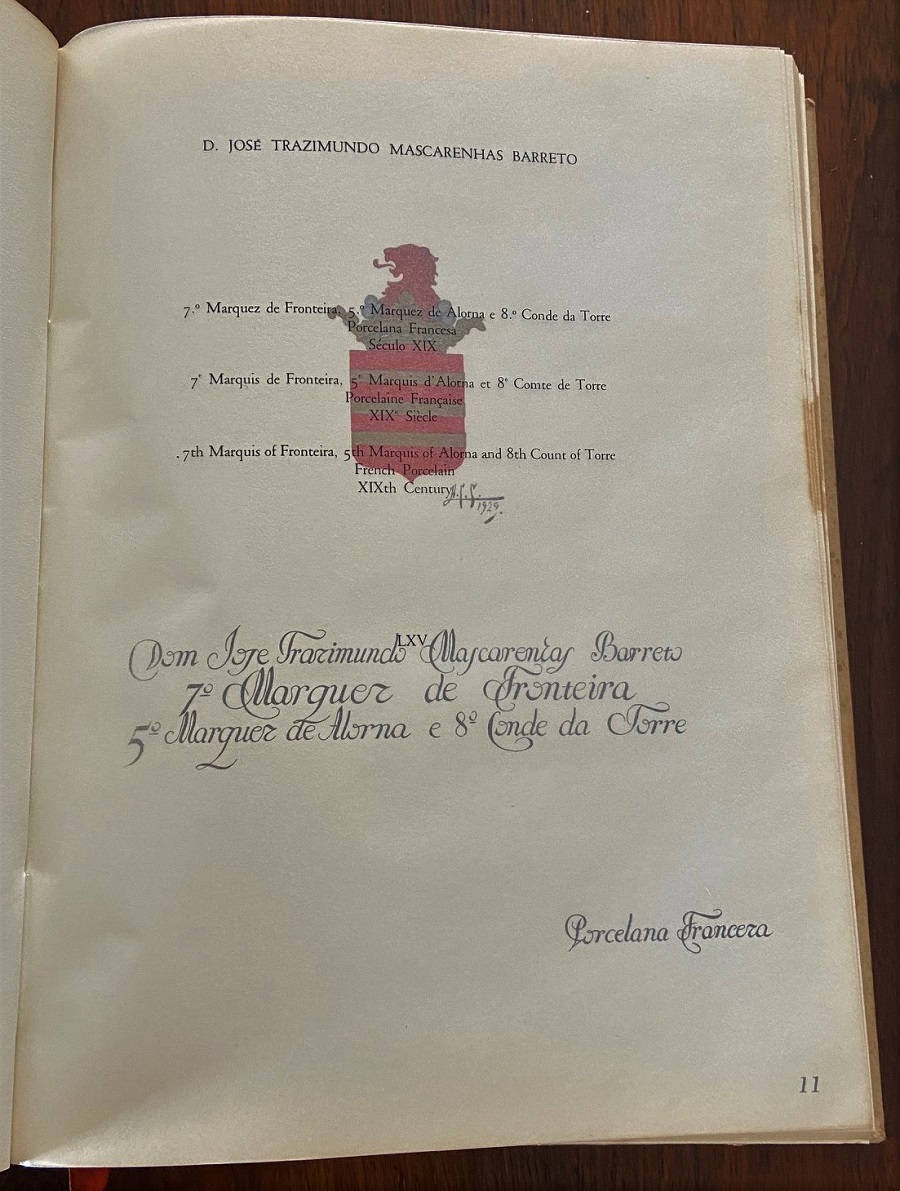 D. JOSÉ TRAZIMUNDO MASCARENHAS BARRETO
7.º Marquez de Fronteira, 5.º Marquez de Alorna e 8.º Conde da Torre
Porcelana Francesa
Século XIX
7ᵉ Marquis de Fronteira, 5ᵉ Marquis d'Alorna et 8ᵉ Comte de Torre
Porcelaine Française
XIXᵉ Siècle
7th Marquis of Fronteira, 5th Marquis of Alorna and 8th Count of Torre
French Porcelain
XIXth Century
1929.
LXV
Dom Joze Trazimundo Mascarenhas Barreto
7º Marquez de Fronteira
5º Marquez de Alorna e 8º Conde da Torre
Porcelana Franceza
11